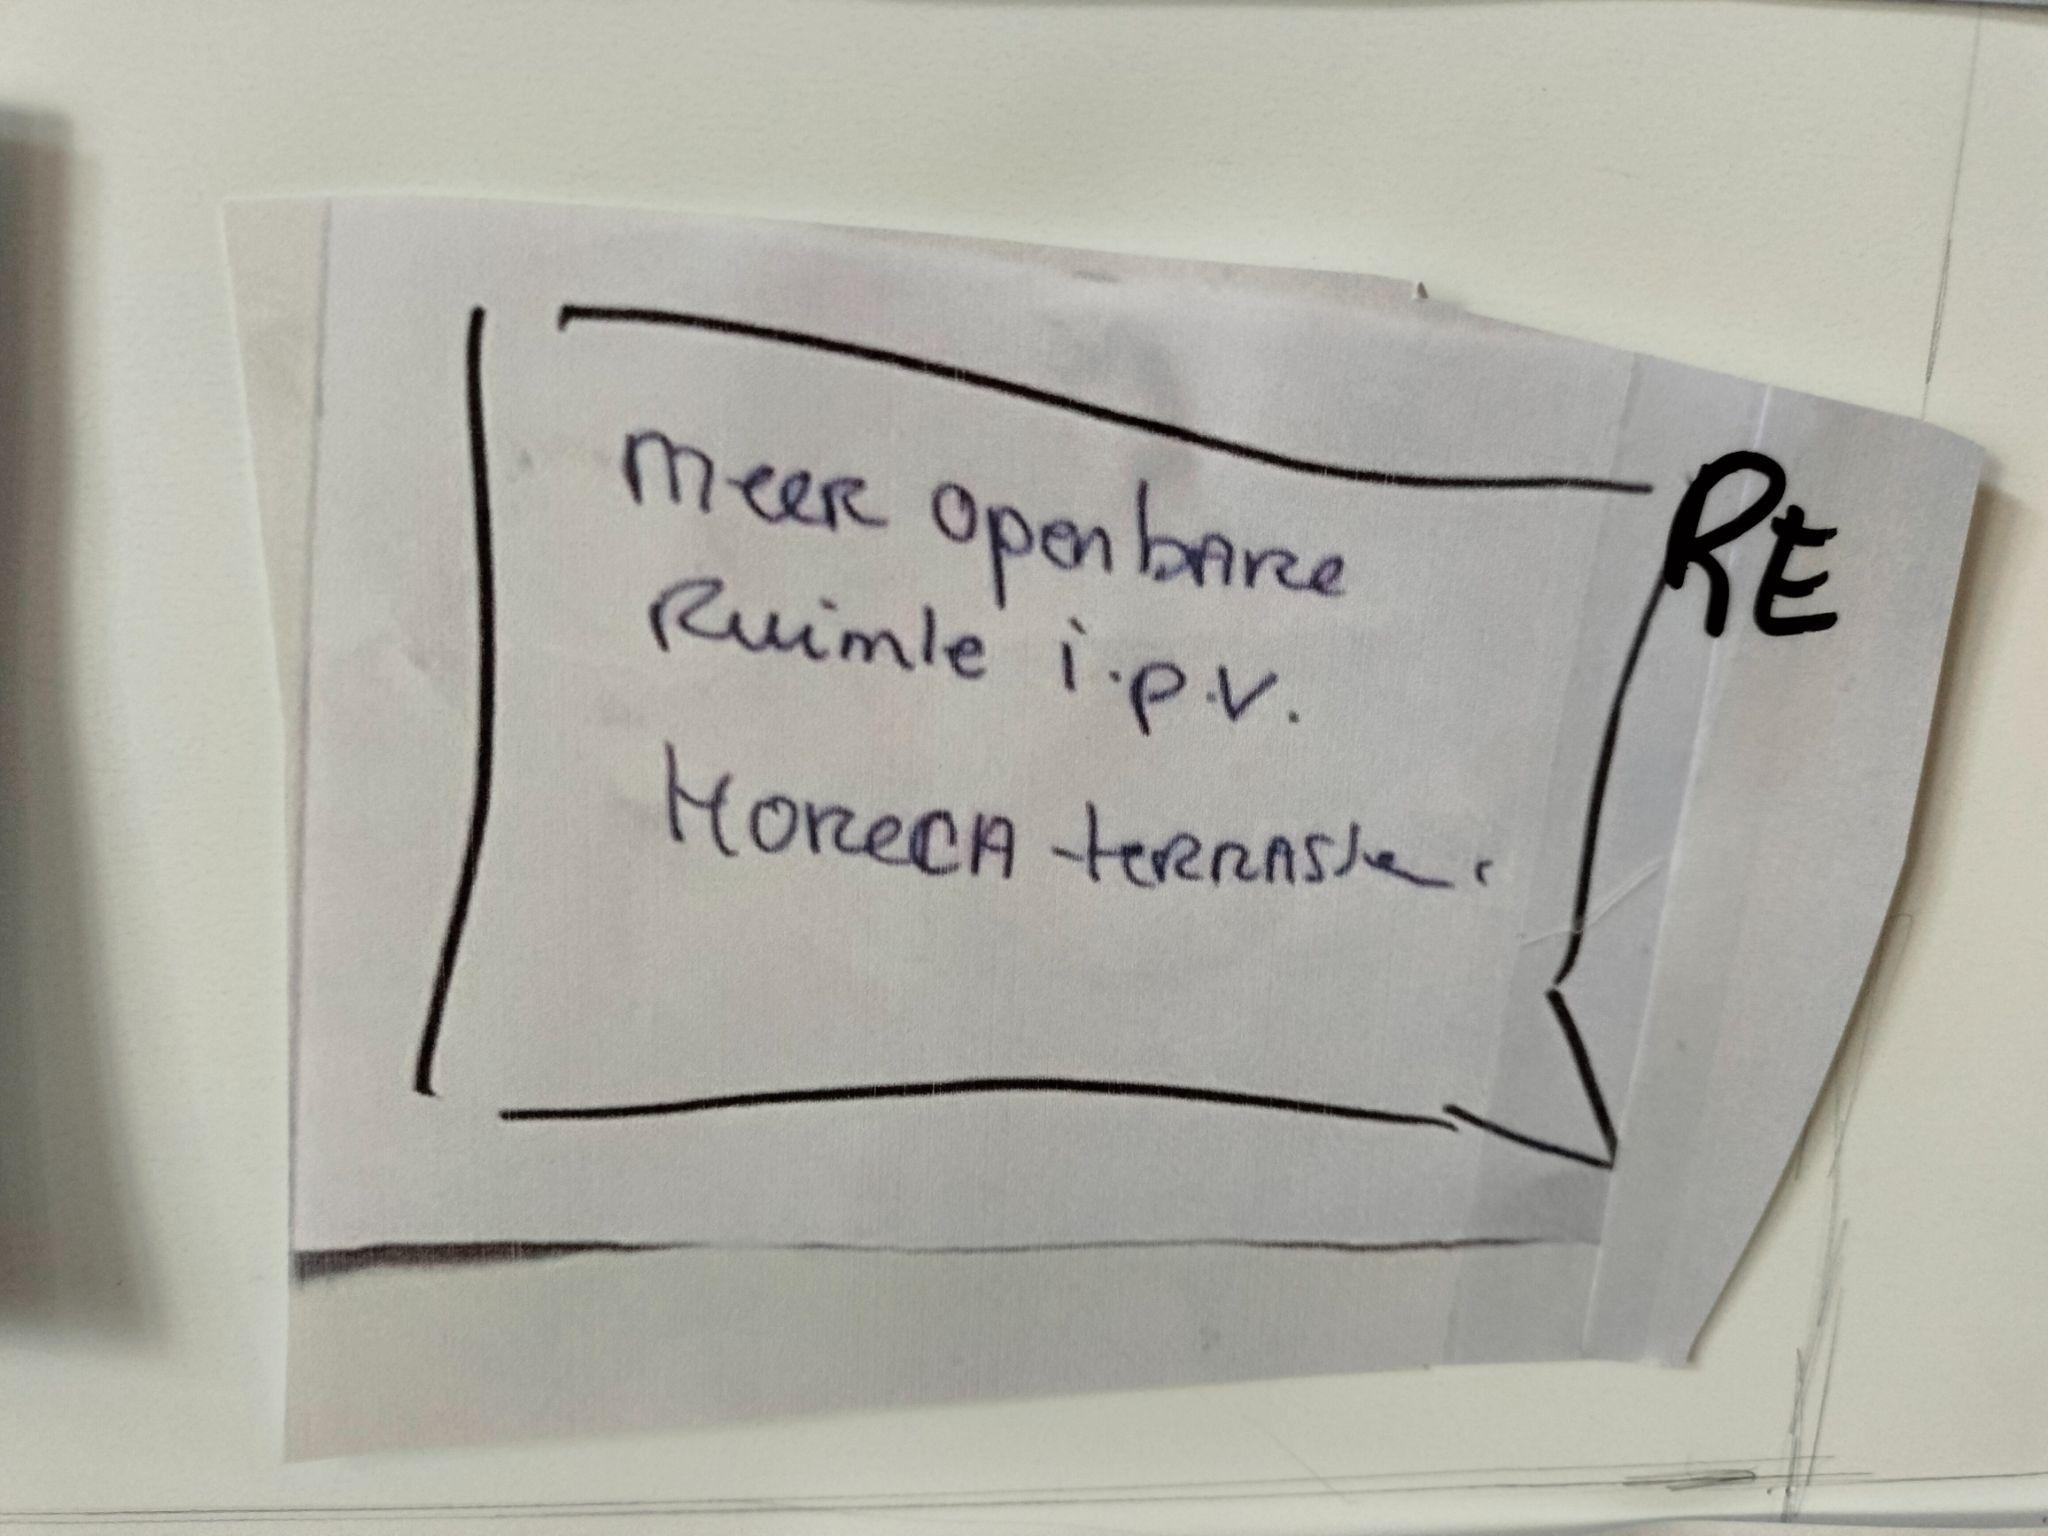 meer openbare
RE
Ruimte i.p.v.
HORECA terrasse.